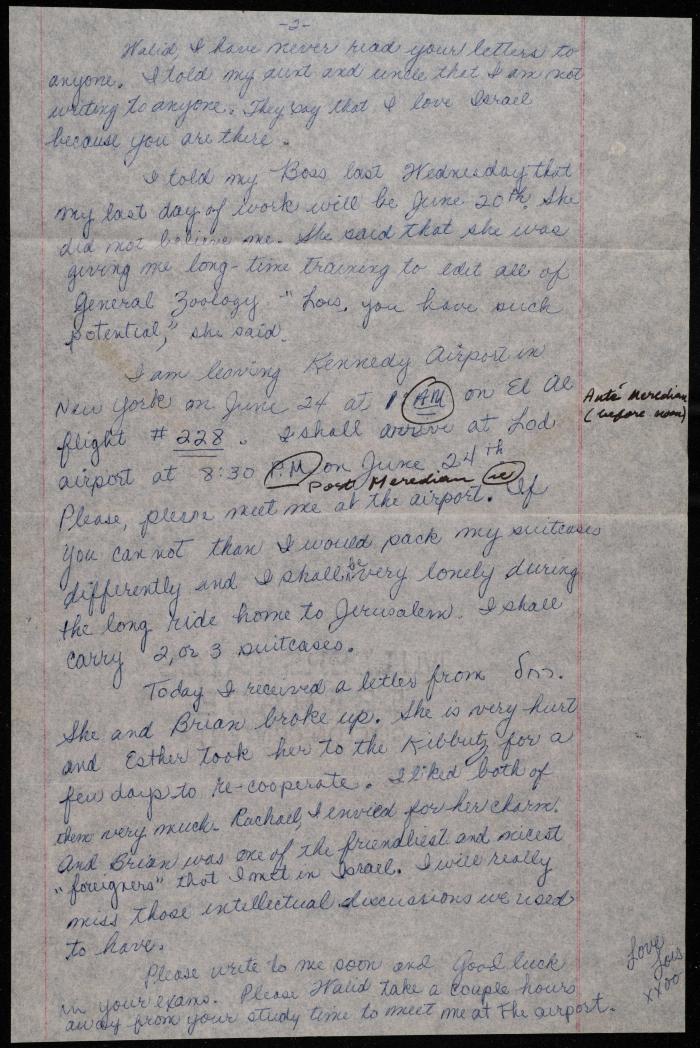 -2-
Walid I have never read your letters to
anyone. I told my aunt and uncle that I am not
writing to anyone. They say that I love Israel
because you are there.
I told my Boss last Wednesday that
my last day of work will be June 20th. She
did not believe me. She said that she was
giving me long-time training to edit all of
General Zoology. "Lois, you have such
potential," she said.
I am leaving Kennedy Airport in
New York on June 24 at 1 AM on El Al
Anté Meredian
(before noon)
flight # 228. I shall arrive at Lod
airport at 8:30 P.M on June 24th
Post Meredian
Please, please meet me at the airport. If
you can not than I would pack my suitcases
differently and I shall be very lonely during
the long ride home to Jerusalem. I shall
carry 2, or 3 suitcases.
Today I received a letter from
She and Brian broke up. She is very hurt
and Esther took her to the Kibbutz for a
few days to re-cooperate. I liked both of
them very much. Rachael, I envied for her charm.
And Brian was one of the friendliest and nicest
"foreigners" that I met in Israel. I will really
miss those intellectual discussions we used
to have.
Please write to me soon and Good luck
in your exams. Please Walid take a couple hours
away from your study time to meet me at the airport.
Love
Lois
xxoo